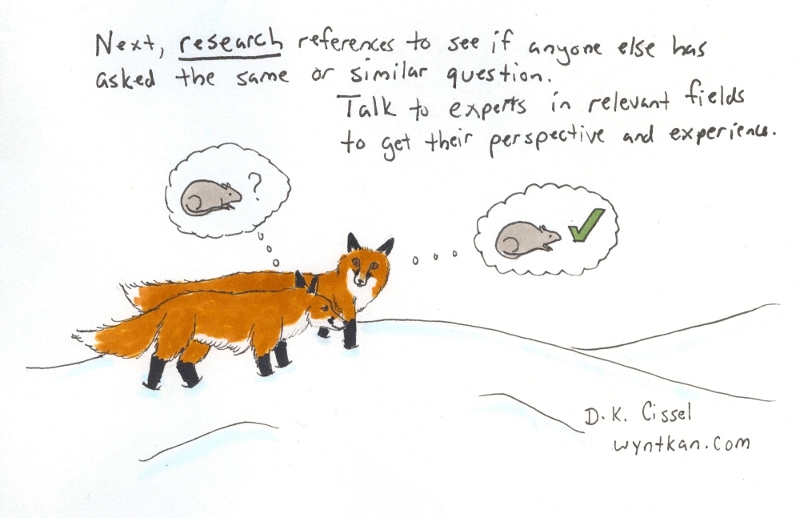 Next, research references to see if anyone else has
asked the same or similar question.
Talk to experts in relevant fields
to get their perspective and experience.
?
D.K. Cissel
wyntkan.com